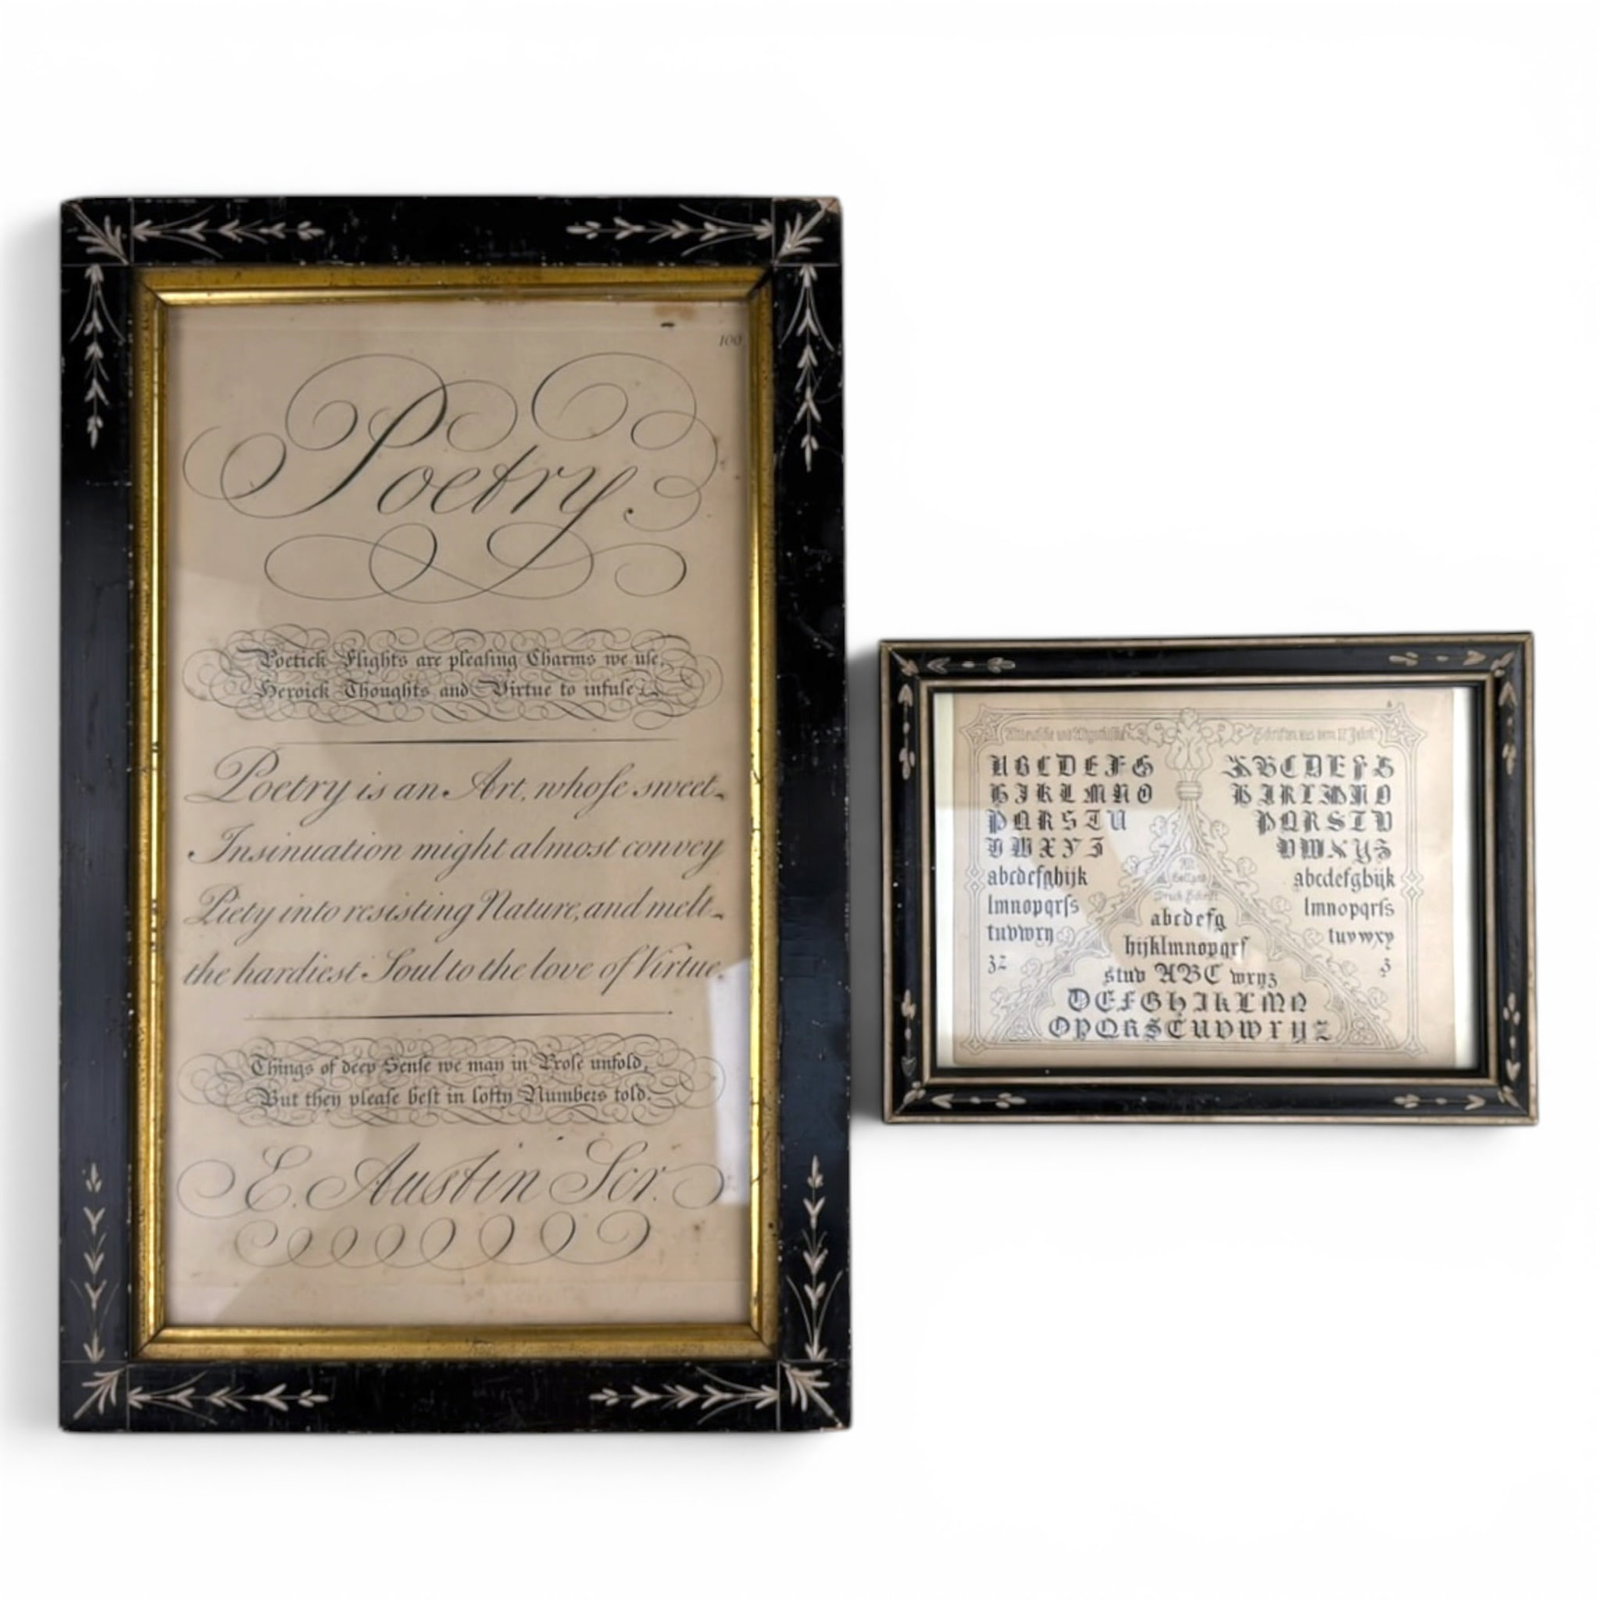 100
Poetry.
Poetick Flights are pleaſing Charms we uſe,
Heroick Thoughts and Virtue to infuſe.
Poetry is an Art, whoſe sweet
Insinuation might almost convey
Piety into resisting Nature, and melt
the hardiest Soul to the love of Virtue.
Things of deep Senſe we may in Proſe unfold,
But they pleaſe beſt in lofty Numbers told.
E. Austin Scr.
Altdeutſche und Schriften aus dem 17. Jahrh.
ABCDEFG
HIKLMNO
PQRSTU
VWXYZ
abcdefghijk
lmnopqrſs
tuvwxy
zz
ABCDEFG
HIKLMNO
PQRSTV
VWXYZ
abcdefghijk
lmnopqrſs
tuvwxy
z
Druck-Schrift
abcdefg
hijklmnopqrſ
stuv ABC wxyz
DEFGHIKLMN
OPQRSTUVWXYZ